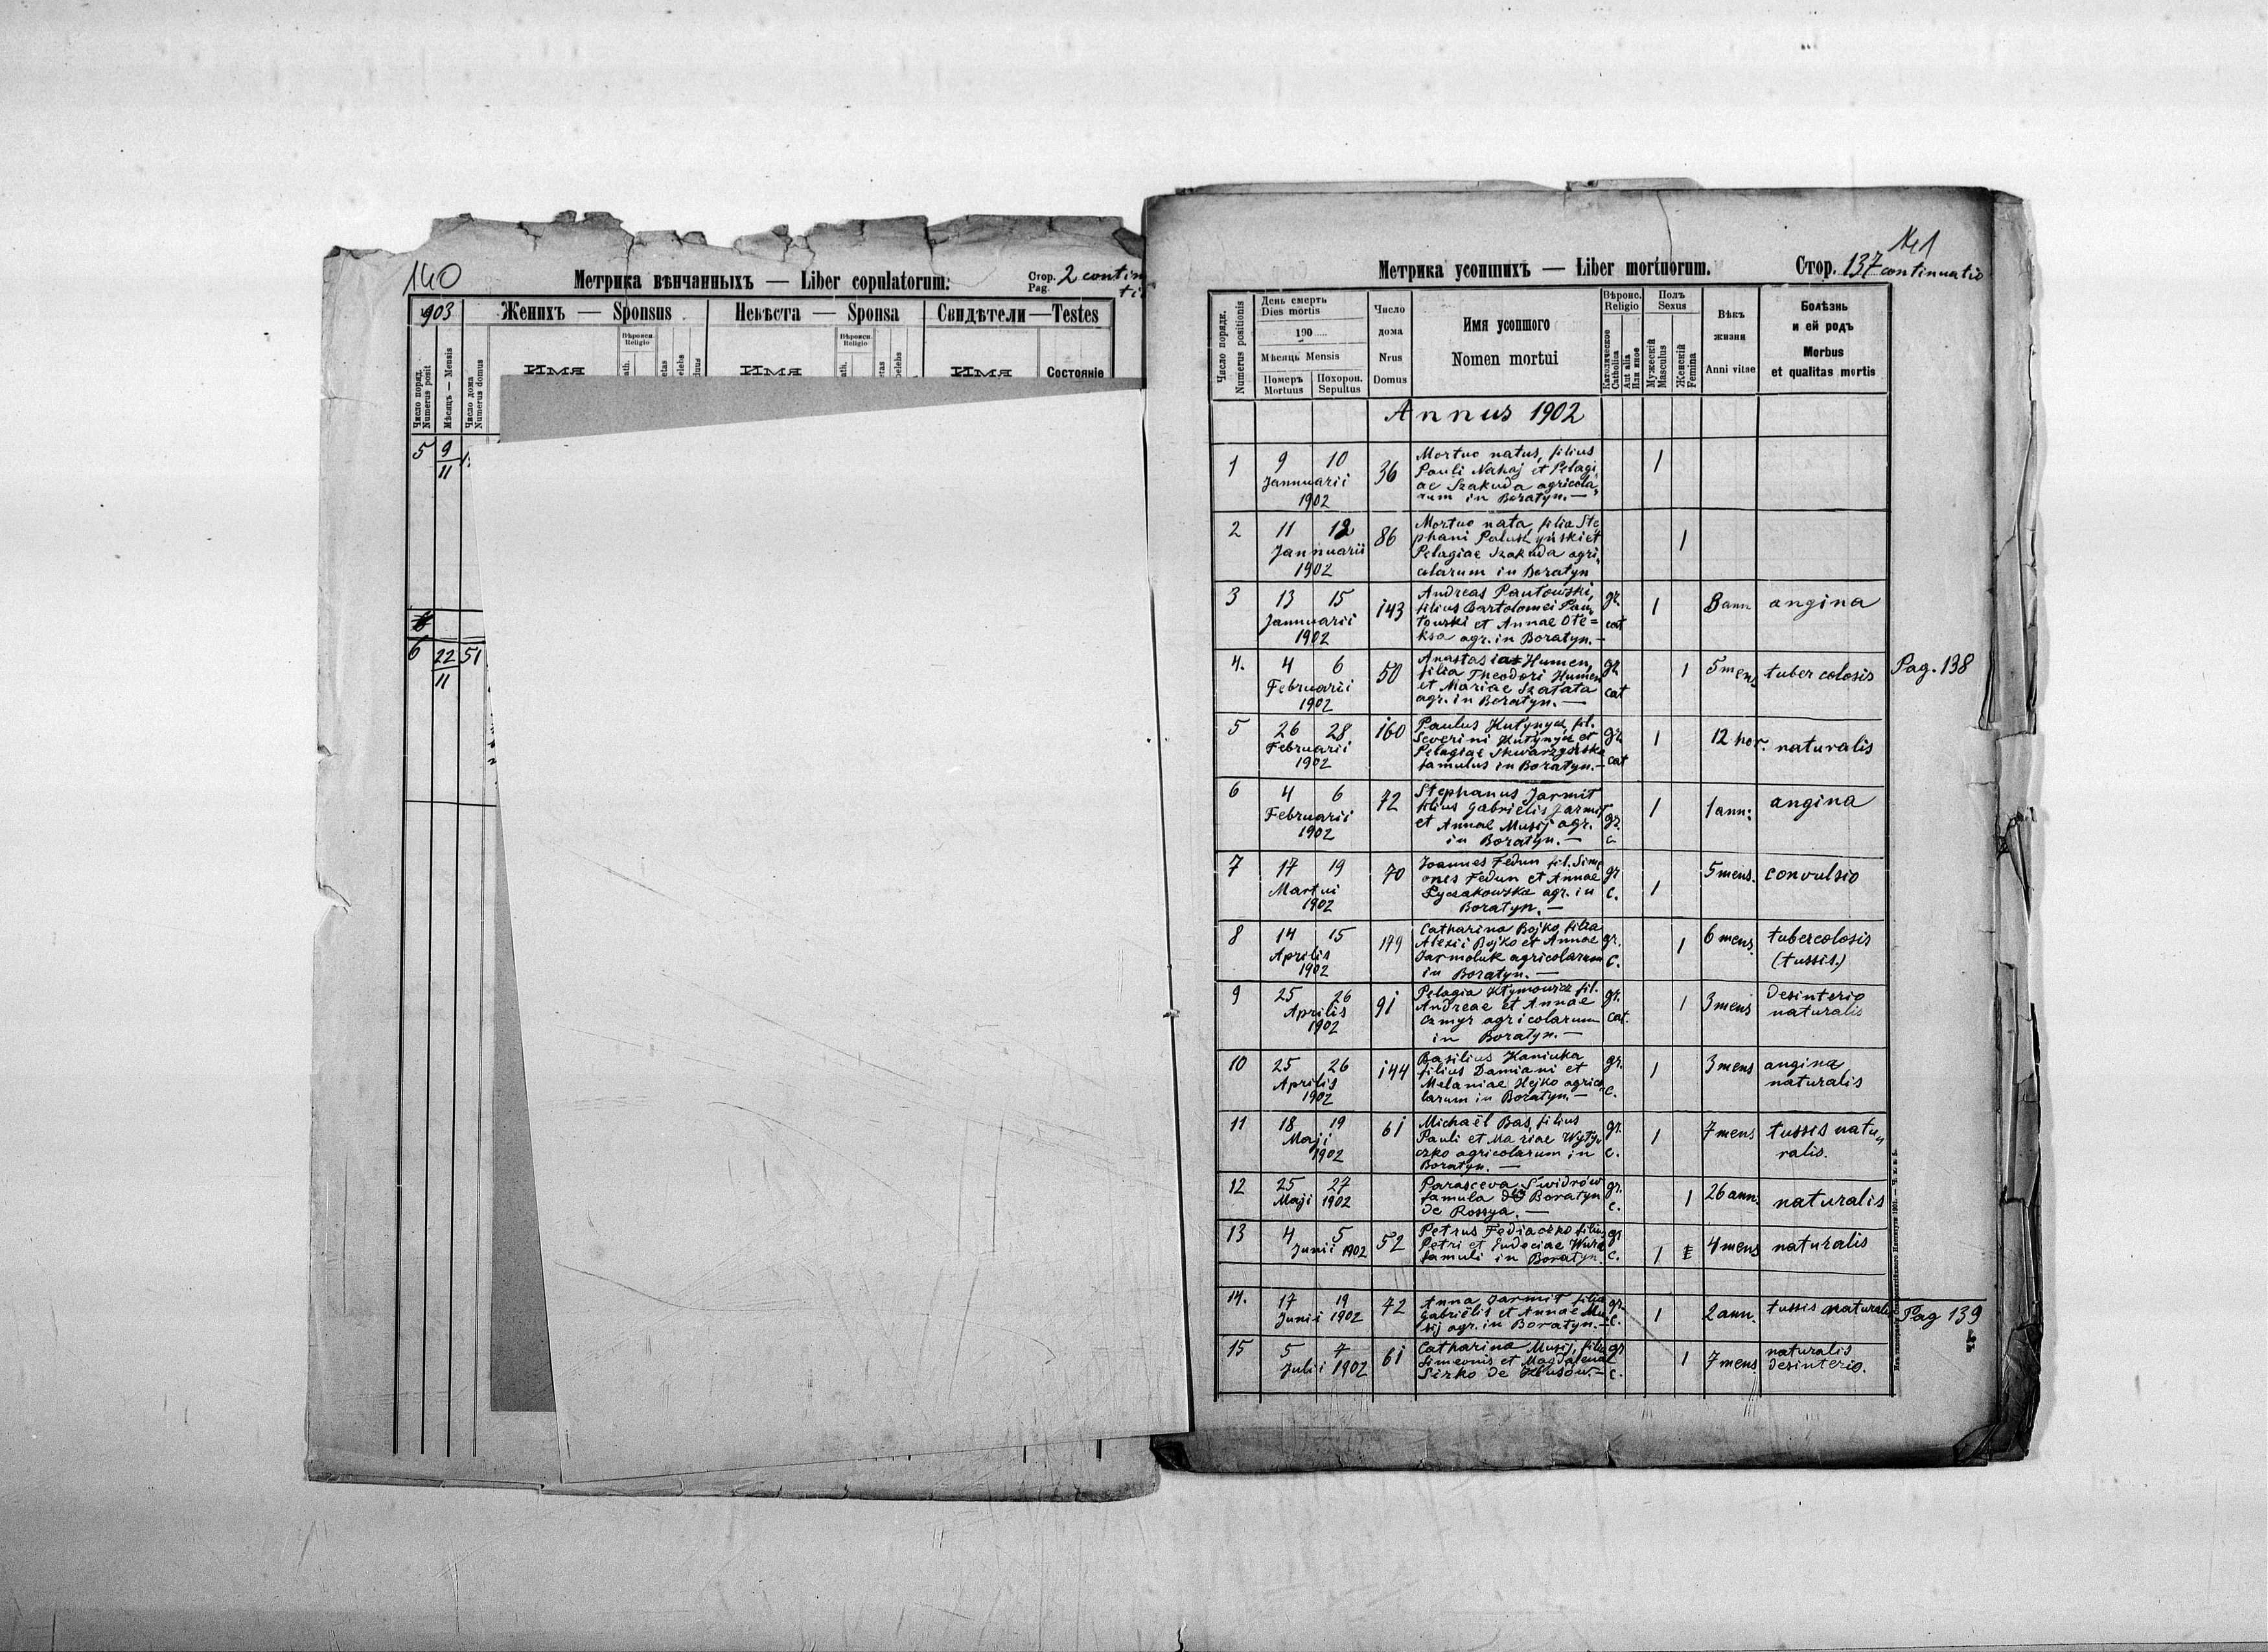 140
Метрика вѣнчанныхъ — Liber copulatorum.
Стор. Pag. 2 contin
ti
903
Женихъ — Sponsus
Невѣста — Sponsa
Свидѣтели — Testes
Число поряд. Numerus posit
Мѣсяць — Mensis
Число дома Numerus domus
Имя
Вѣроисп. Religio
Имя
Вѣроисп. Religio
Имя
Состояніе
5 9/11
6 22/11 51
№1
Метрика усопшихъ — Liber mortuorum.
Стор. 137 continuatio
Число порядк. Numerus positionis
День смерть Dies mortis
190
Мѣсяць Mensis
Померъ Mortuus
Похорон. Sepultus
Число дома
Nrus Domus
Имя усопшого
Nomen mortui
Вѣроис. Religio
Католическое Catholica
Aut alia Или иное
Полъ Sexus
Мужескій Masculus
Женскій Femina
Вѣкъ жизни
Anni vitae
Болѣзнь и ей родъ
Morbus et qualitas mortis
Annus 1902
1 9 10 Jannuarii 1902 36
Mortuo natus, filius
Pauli Nahaj et Pelagi
ae Szakuda agricola
rum in Boratyn. —
1
2 11 12 Jannuarii 1902 86
Mortuo nata, filia Ste
phani Paluszyński et
Pelagiae Szakuda agri
colarum in Boratyn
1
3 13 15 Jannuarii 1902 143
Andreas Pautowski,
filius Bartolomei Pau
towski et Annae Ole=
ksa agr. in Boratyn. —
gr. cat 1 3 ann angina
4. 4 6 Februarii 1902 50
Anastasia Humen,
filia Theodori Humen
et Mariae Szatata
agr. in Boratyn. —
gr. cat 1 5 mens tubercolosis
Pag. 138
5 26 28 Februarii 1902 160
Paulus Kutynycz, fil.
Severini Kutynycz et
Pelagiae Skwarzyńska
famulus in Boratyn. —
gr. cat 1 12 hor. naturalis
6 4 6 Februarii 1902 72
Stephanus Jarmit
filius Gabrielis Jarmit
et Annae Musij agr.
in Boratyn. —
gr. c. 1 1 ann: angina
7 17 19 Martii 1902 70
Joannes Fedun fil. Sime
onis Fedun et Annae
Łyczakowska agr. in
Boratyn. —
gr c. 1 5 mens. convulsio
8 14 15 Aprilis 1902 179
Catharina Bojko, filia
Alexii Bojko et Annae
Jarmoluk agricolarum
in Boratyn. —
gr. c. 1 6 mens. tubercolosis
(tussis.)
9 25 26 Aprilis 1902 91
Pelagia Kłymowicz fil.
Andreae et Annae
Czmyr agricolarum
in Boratyn. —
gr. cat. 1 3 mens desinterio
naturalis
10 25 26 Aprilis 1902 144
Basilius Kaniuka
filius Damiani et
Melaniae Hejko agrico
larum in Boratyn. —
gr. c. 1 3 mens angina
naturalis
11 18 19 Maji 1902 61
Michaël Bas, filius
Pauli et Mariae Wyty
czko agricolarum in
Boratyn. —
gr. c. 1 7 mens tussis natu
ralis.
12 25 27 Maji 1902
Parasceva Swidrów
famula Boratyn
de Rossya. —
gr. c. 1 26 ann. naturalis
13 4 5 Junii 1902 52
Petrus Fediaczko filius
Petri et Eudociae Wura
famuli in Boratyn.
gr c. 1 4 mens naturalis
14. 17 19 Junii 1902 72
Anna Jarmit filia
Gabriëlis et Annae Mu
sij agr. in Boratyn. —
gr. c. 1 2 ann. tussis naturalis
Pag 139
15 5 7 Julii 1902 61
Catharina Musij, filia
Simeonis et Magdalenae
Sirko de Kłusów. —
gr c. 1 7 mens. naturalis
desinterio.